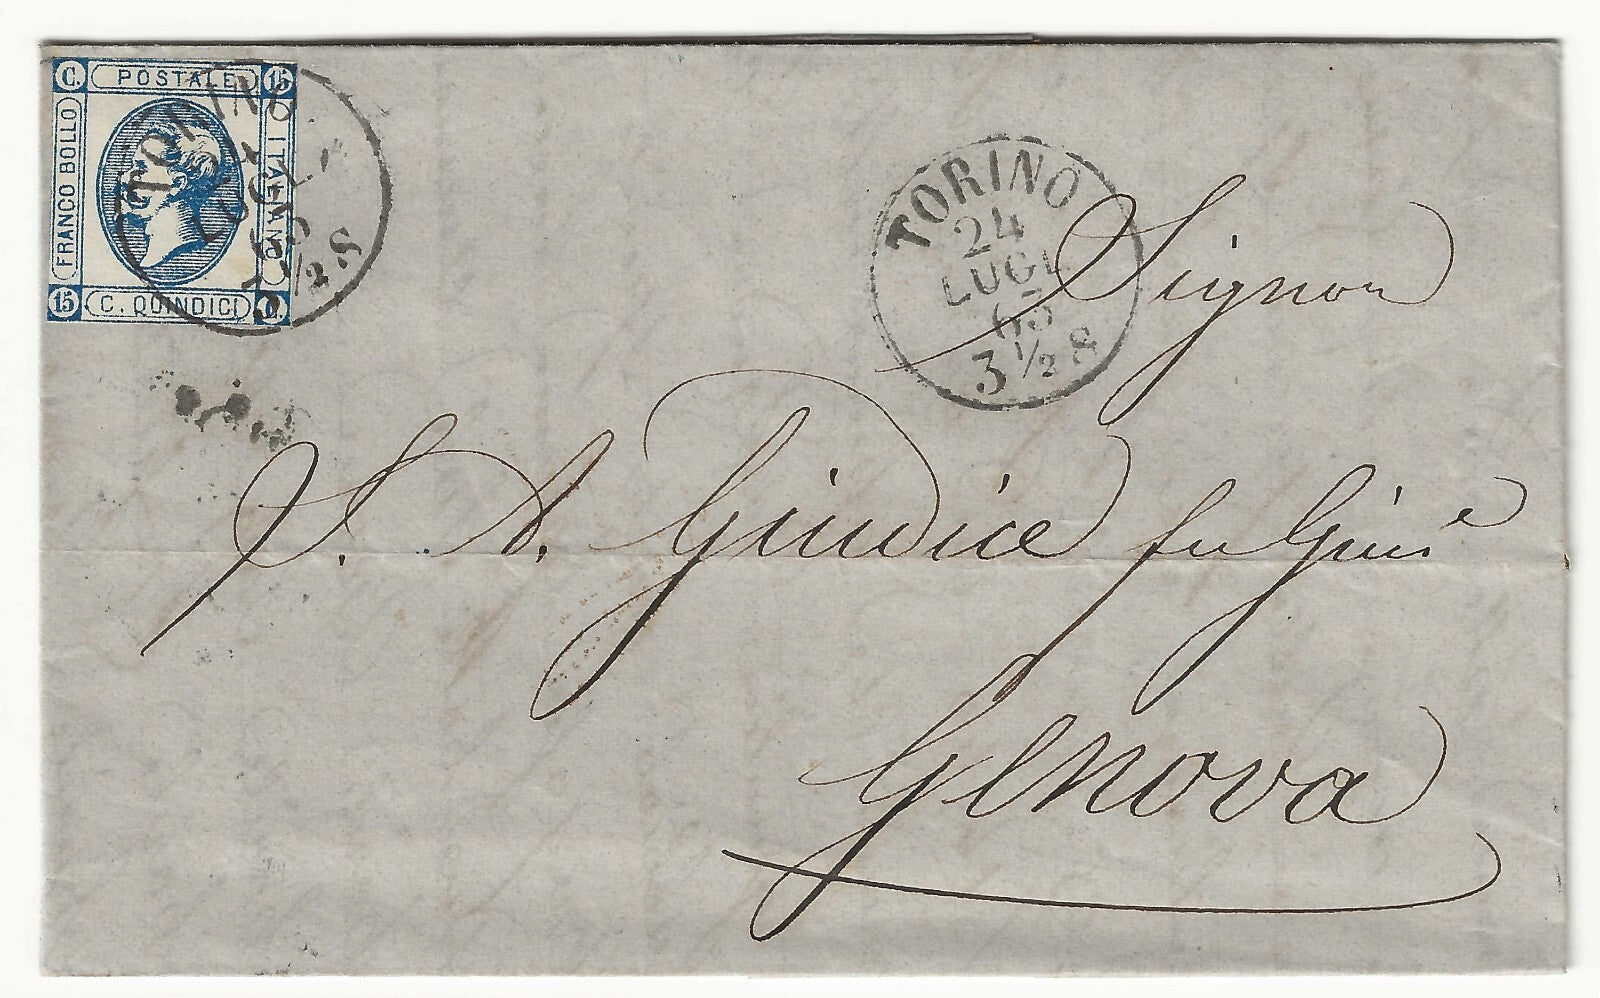 C. POSTALE 15
FRANCO BOLLO
ITALIANO
15 C. QUINDICI C.
TORINO
24
LUGL
63
3 1/2 S
TORINO
24
LUGL
63
3 1/2 S
Signor
G. A. Giudice fu Gius.e
Genova